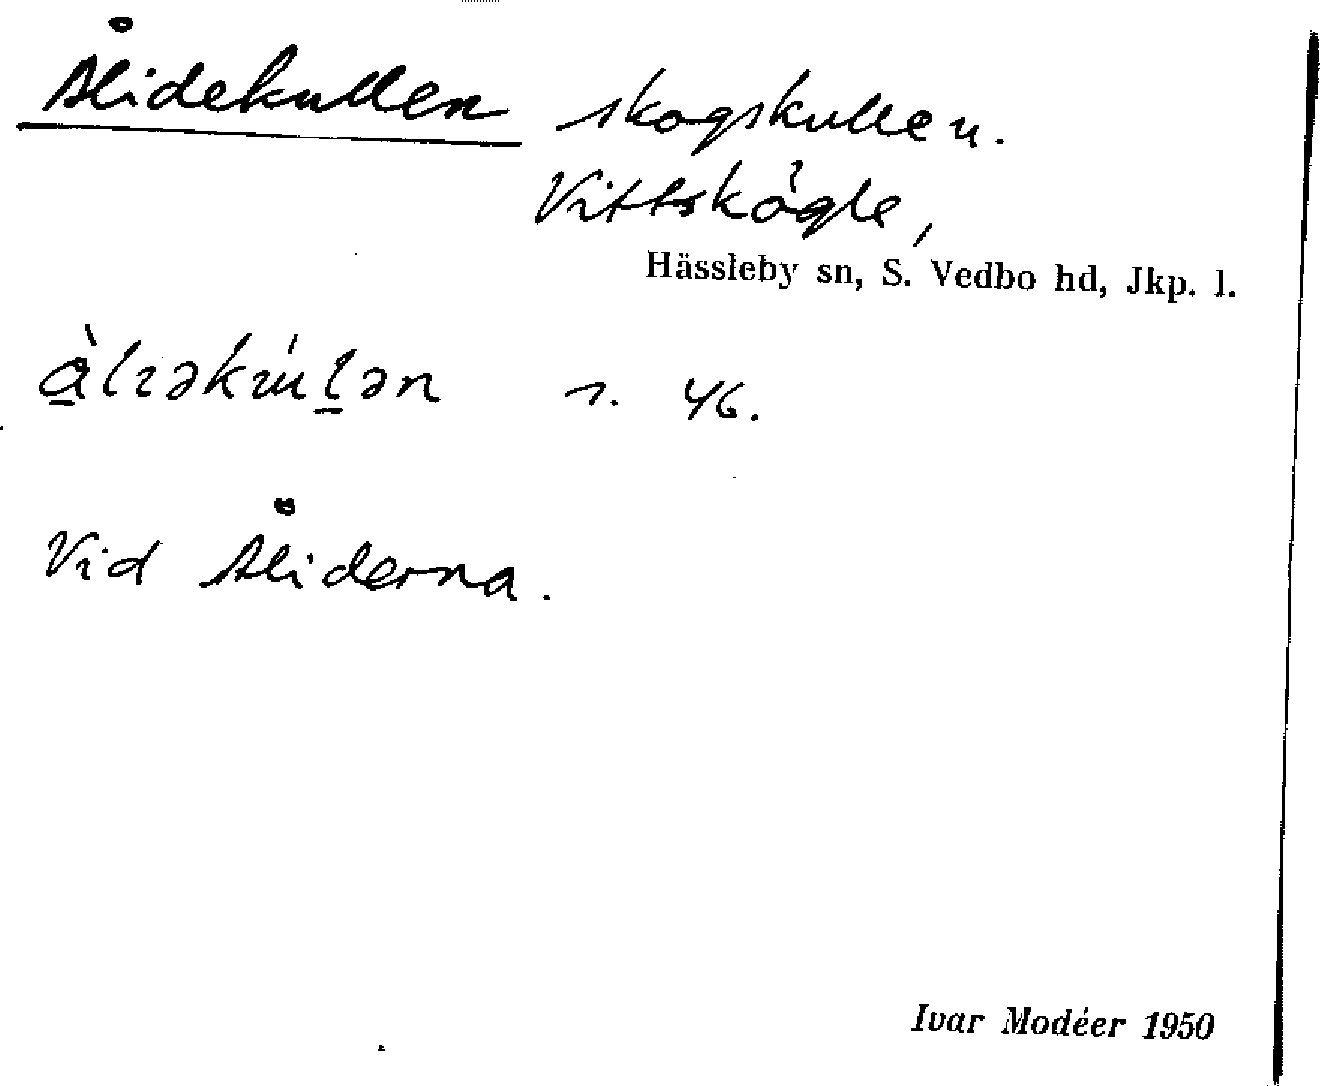 Ålidekullen skogskullen.
Vittskögle,
Hässleby sn, S. Vedbo hd, Jkp. l.
s. 46.
Vid Åliderna.
Ivar Modéer 1950